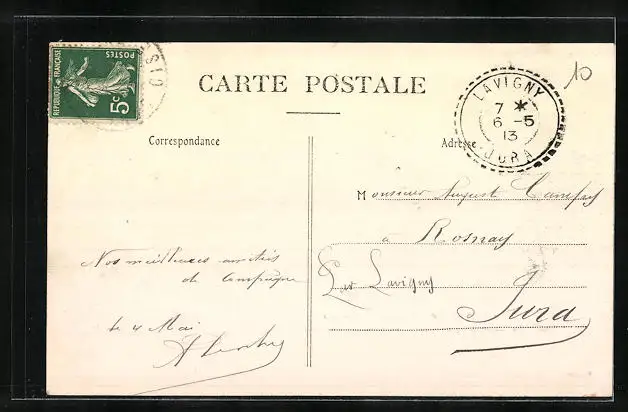 REPUBLIQUE FRANÇAISE
POSTES
5c
CARTE POSTALE
LAVIGNY
7 *
6 -5
13
JURA
10
Correspondance
Adresse
Monsieur August
à Rosnay
Par Lavigny
Jura
Nos meilleures amitiés
de Campagne
le 4 Mai